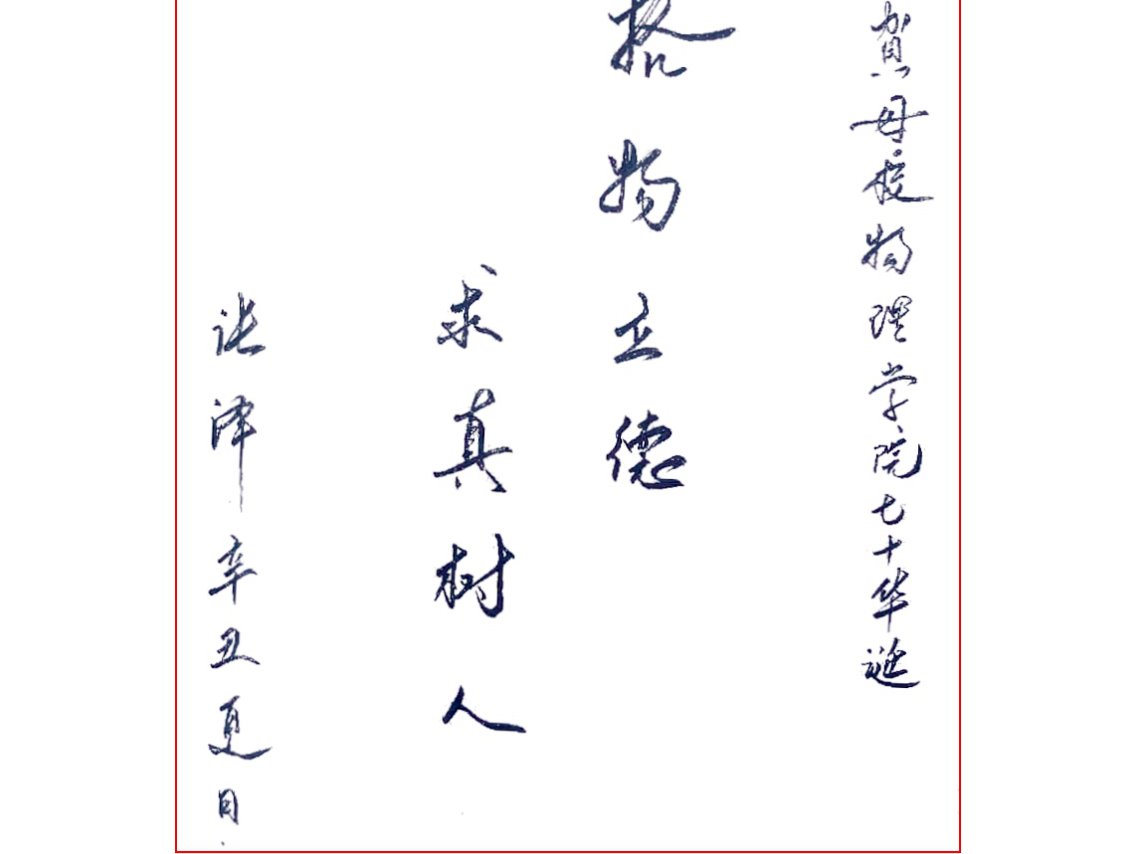 贺母校物理学院七十华诞
格物立德
求真树人
张泽 辛丑夏日